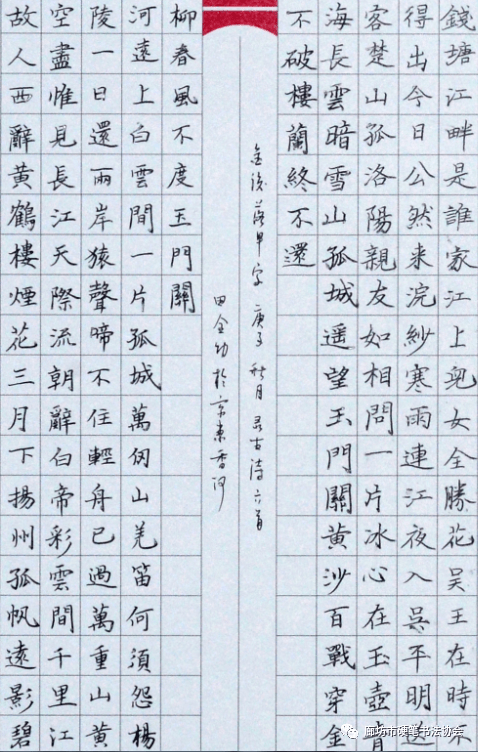 錢塘江畔是誰家江上兒女全勝花吳王在時不
得出今日公然来浣紗寒雨連江夜入吳平明送
客楚山孤洛陽親友如相問一片冰心在玉壺青
海長雲暗雪山孤城遥望玉門關黃沙百戰穿金
不破樓蘭終不還
故人西辭黃鶴樓煙花三月下揚州孤帆遠影碧
空盡惟見長江天際流朝辭白帝彩雲間千里江
陵一日還兩岸猿聲啼不住輕舟已過萬重山黃
河遠上白雲間一片孤城萬仞山羌笛何須怨楊
柳春風不度玉門關
落單字 庚子秋月录古诗六首
田全幼於京東香河
廊坊市硬笔书法协会